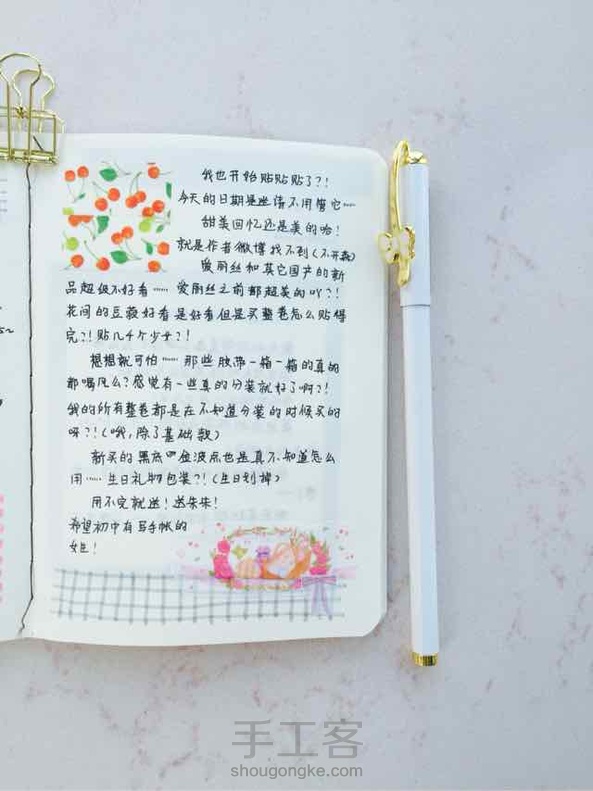 我也开始贴贴贴了?!
今天的日期是坐请不用管它……
甜美回忆还是美的哈!
就是作者微博找不到(不开森)
爱丽丝和其它国产的新
品超级不好看……爱丽丝之前都超美的吖?!
花间的豆蔻好看是好看但是买整卷怎么贴得
完?!贴几千个少女?!
想想就可怕……那些胶带一箱一箱的真的
都喝风么?感觉有一些真的分装就好了啊?!
我的所有整卷都是在不知道分装的时候买的
呀?!(哦,除了基础款)
新买的黑底金波点也是真不知道怎么
用……生日礼物包装?!(生日划掉)
用不完就送!送朱朱!
希望初中有写手帐的
女生!
手工客
shougongke.com